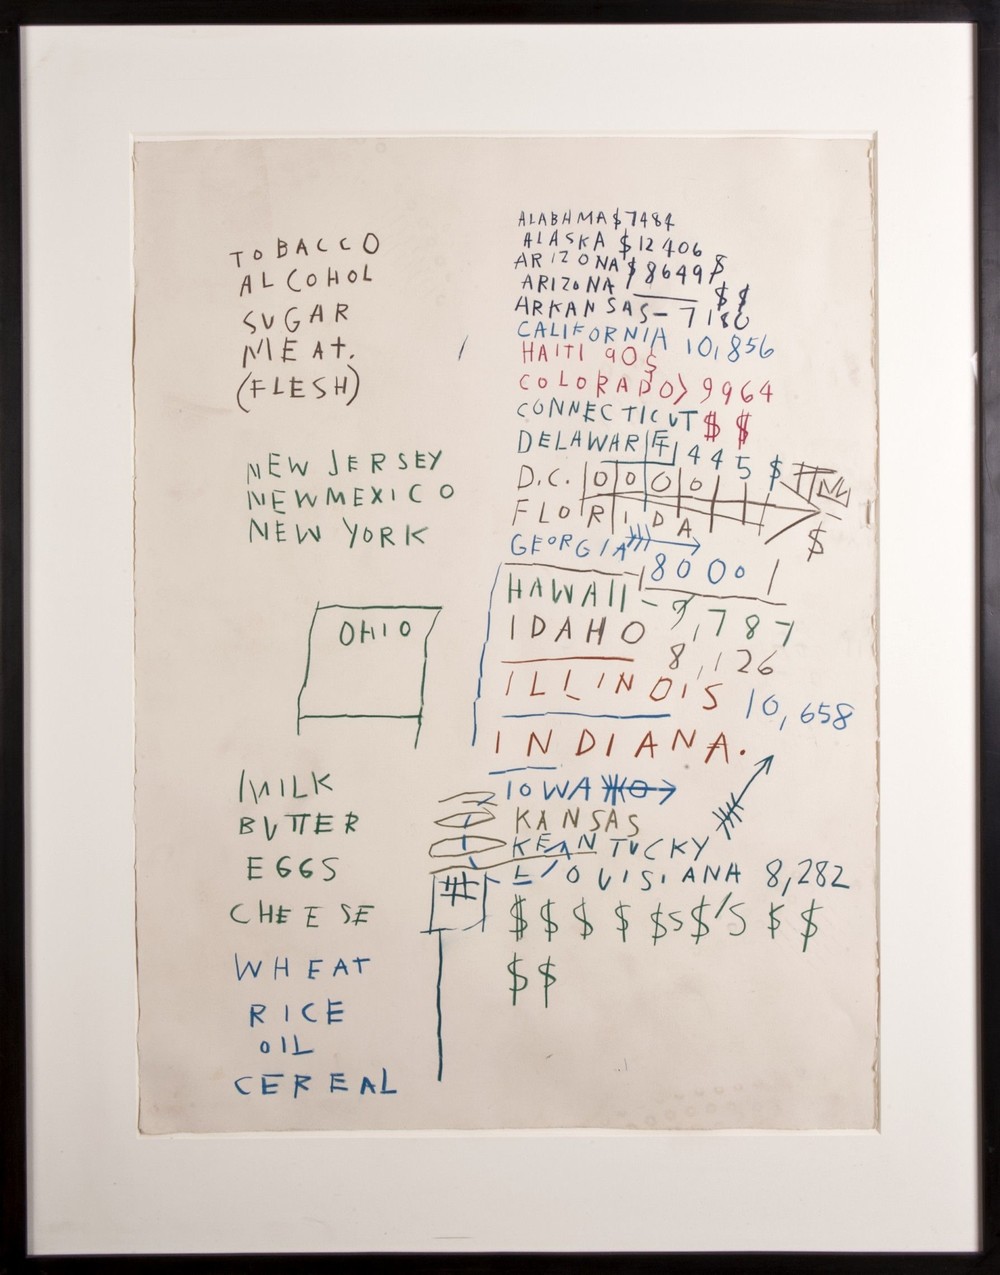 TOBACCO
ALCOHOL
SUGAR
MEAT.
(FLESH)
NEW JERSEY
NEW MEXICO
NEW YORK
OHIO
MILK
BUTTER
EGGS
CHEESE
WHEAT
RICE
OIL
CEREAL
ALABHMA $7484
ALASKA $12406
ARIZONA $8649 $
ARIZONA $$
ARKANSAS - 7180
CALIFORNIA 10,856
HAITI 90$
COLORADO> 9964
CONNECTICUT $ $
DELAWARE 445 $
D.C. 0000
FLORIDA $
GEORGIA 8000
HAWAII - 9,787
IDAHO
8,126
ILLINOIS 10,658
INDIANA.
IOWA
KANSAS
KEANTUCKY
LOUISIANA 8,282
$ $ $ $ $S$'S $ $
$$
#